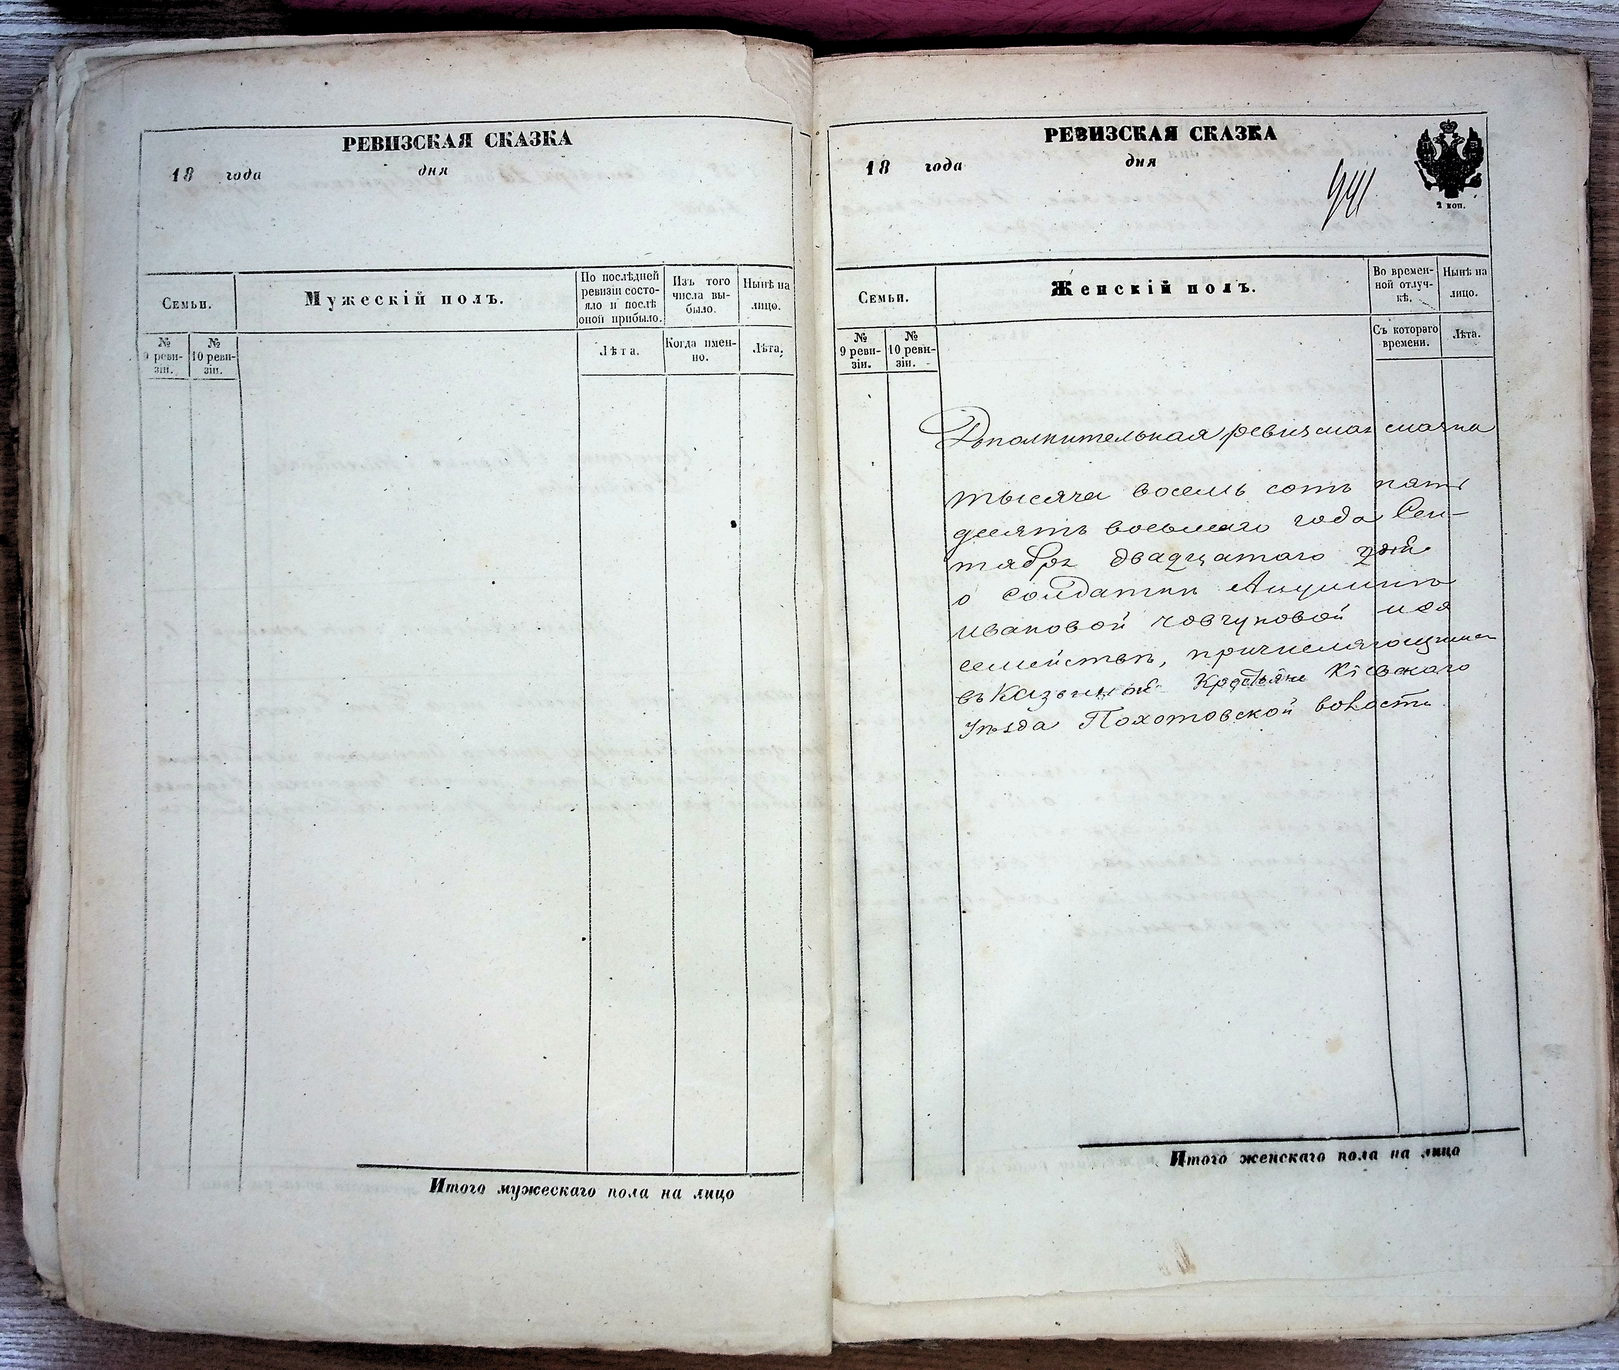 РЕВИЗСКАЯ СКАЗКА
18 года дня
Семьи.
Мужескій полъ.
По послѣдней ревизіи состояло и послѣ оной прибыло.
Изъ того числа выбыло.
Нынѣ на лицо.
№ 9 ревизіи.
№ 10 ревизіи.
Лѣта.
Когда именно.
Лѣта.
Итого мужескаго пола на лицо
РЕВИЗСКАЯ СКАЗКА
18 года дня
941
2 коп.
Семьи.
Женскій полъ.
Во временной отлучкѣ.
Нынѣ на лицо.
№ 9 ревизіи.
№ 10 ревизіи.
Съ котораго времени.
Лѣта.
Дополнительная ревизская сказка
тысяча восемь сотъ пять
десятъ восьмаго года Сен-
тября двадцатаго дня
о солдатки Акулинѣ
Ивановой Човгуновой и ея
семействѣ, причисляющимся
въ Казенной Крестьяне Кіевскаго
Уѣзда Хотовской волости
Итого женскаго пола на лицо